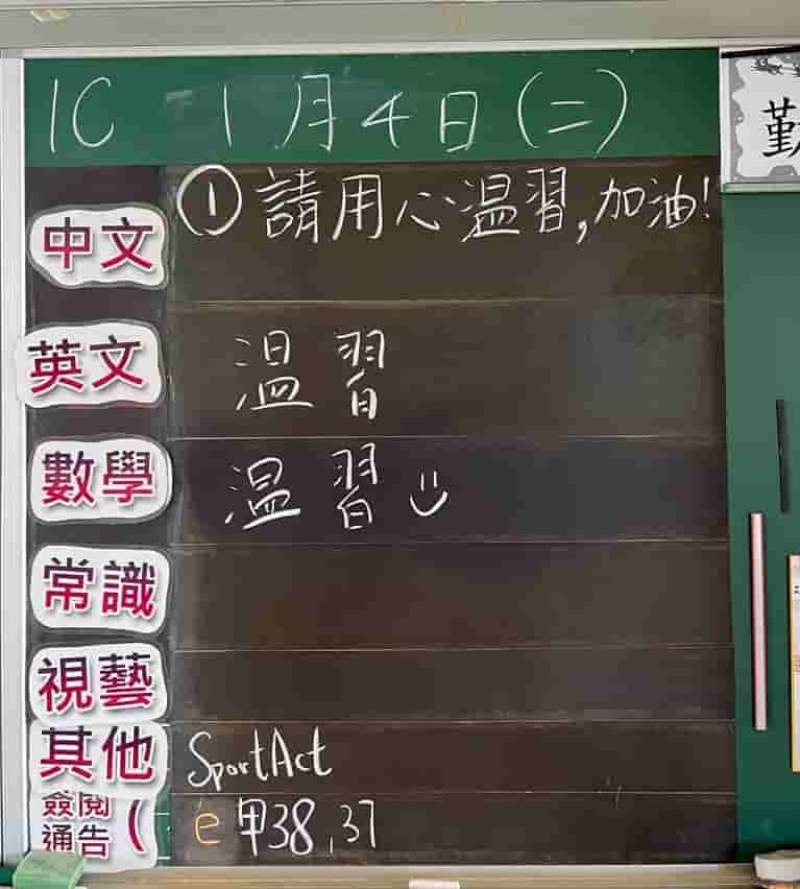 1C 1月4日(二)
勤
中文 ①請用心温習,加油!
英文 温習
數學 温習
常識
視藝
其他 SportAct
簽閱通告( e甲38,37